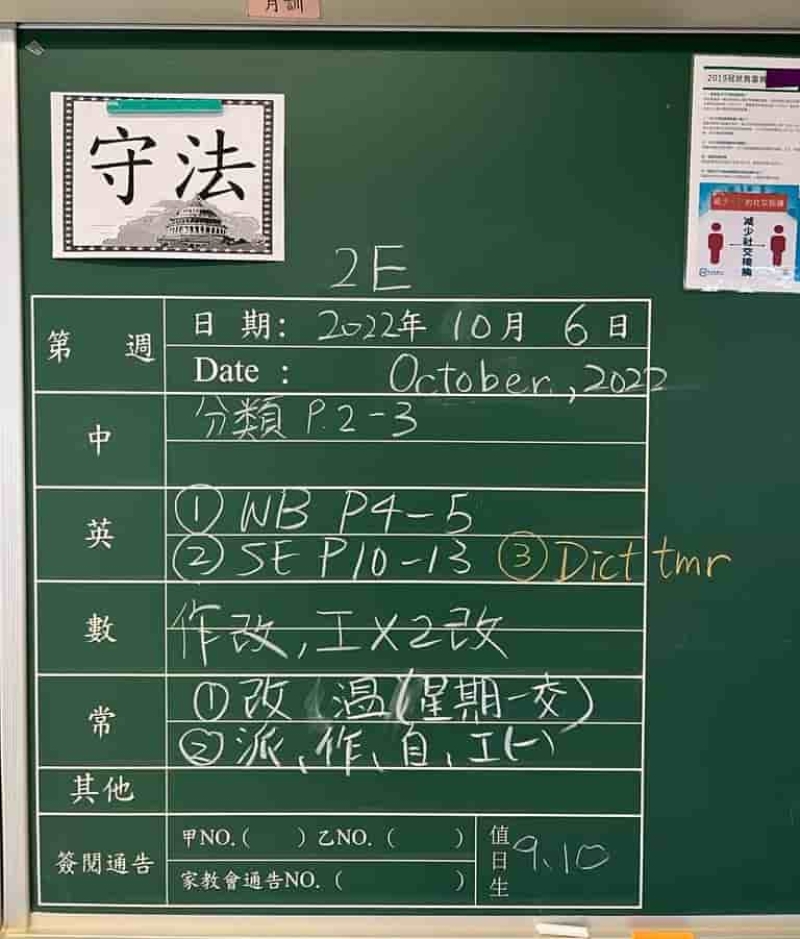 月訓
守法
2E
第 週
日 期: 2022年 10月 6日
Date : October , 2022
中
分類 P.2-3
英
① WB P4-5
② SE P10-13 ③ Dict tmr
數
作改,工X2改
常
① 改 (溫(星期一交)
② 派、作、自、工(一)
其他
簽閱通告
甲NO.( ) 乙NO. ( )
家教會通告NO. ( )
值日生 9、10
減少社交接觸